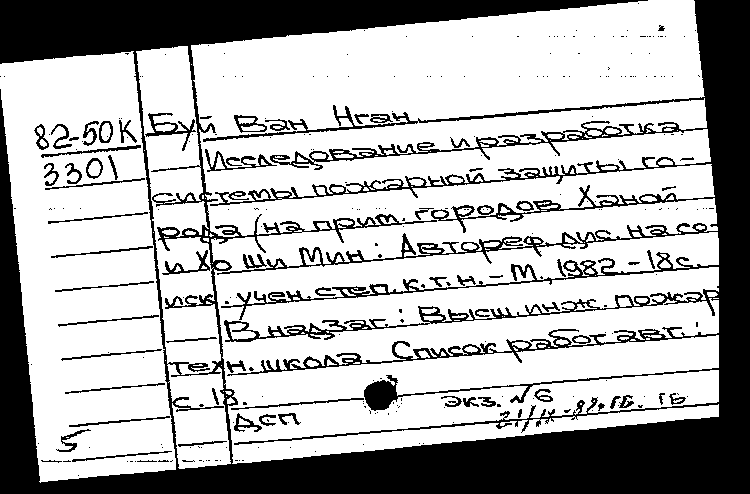 82-50К
3301
Буй Ван Нган.
Исследование и разработка
системы пожарной защиты го-
рода (на прим. городов Ханой
и Хо Ши Мин: Автореф. дис. на со-
иск. учен. степ. к.т.н. - М., 1982. - 18 с.
В надзаг.: Высш. инж. пожар
техн. школа. Список работ авт.:
с. 18.
ДСП
экз. №6
ГБ
5